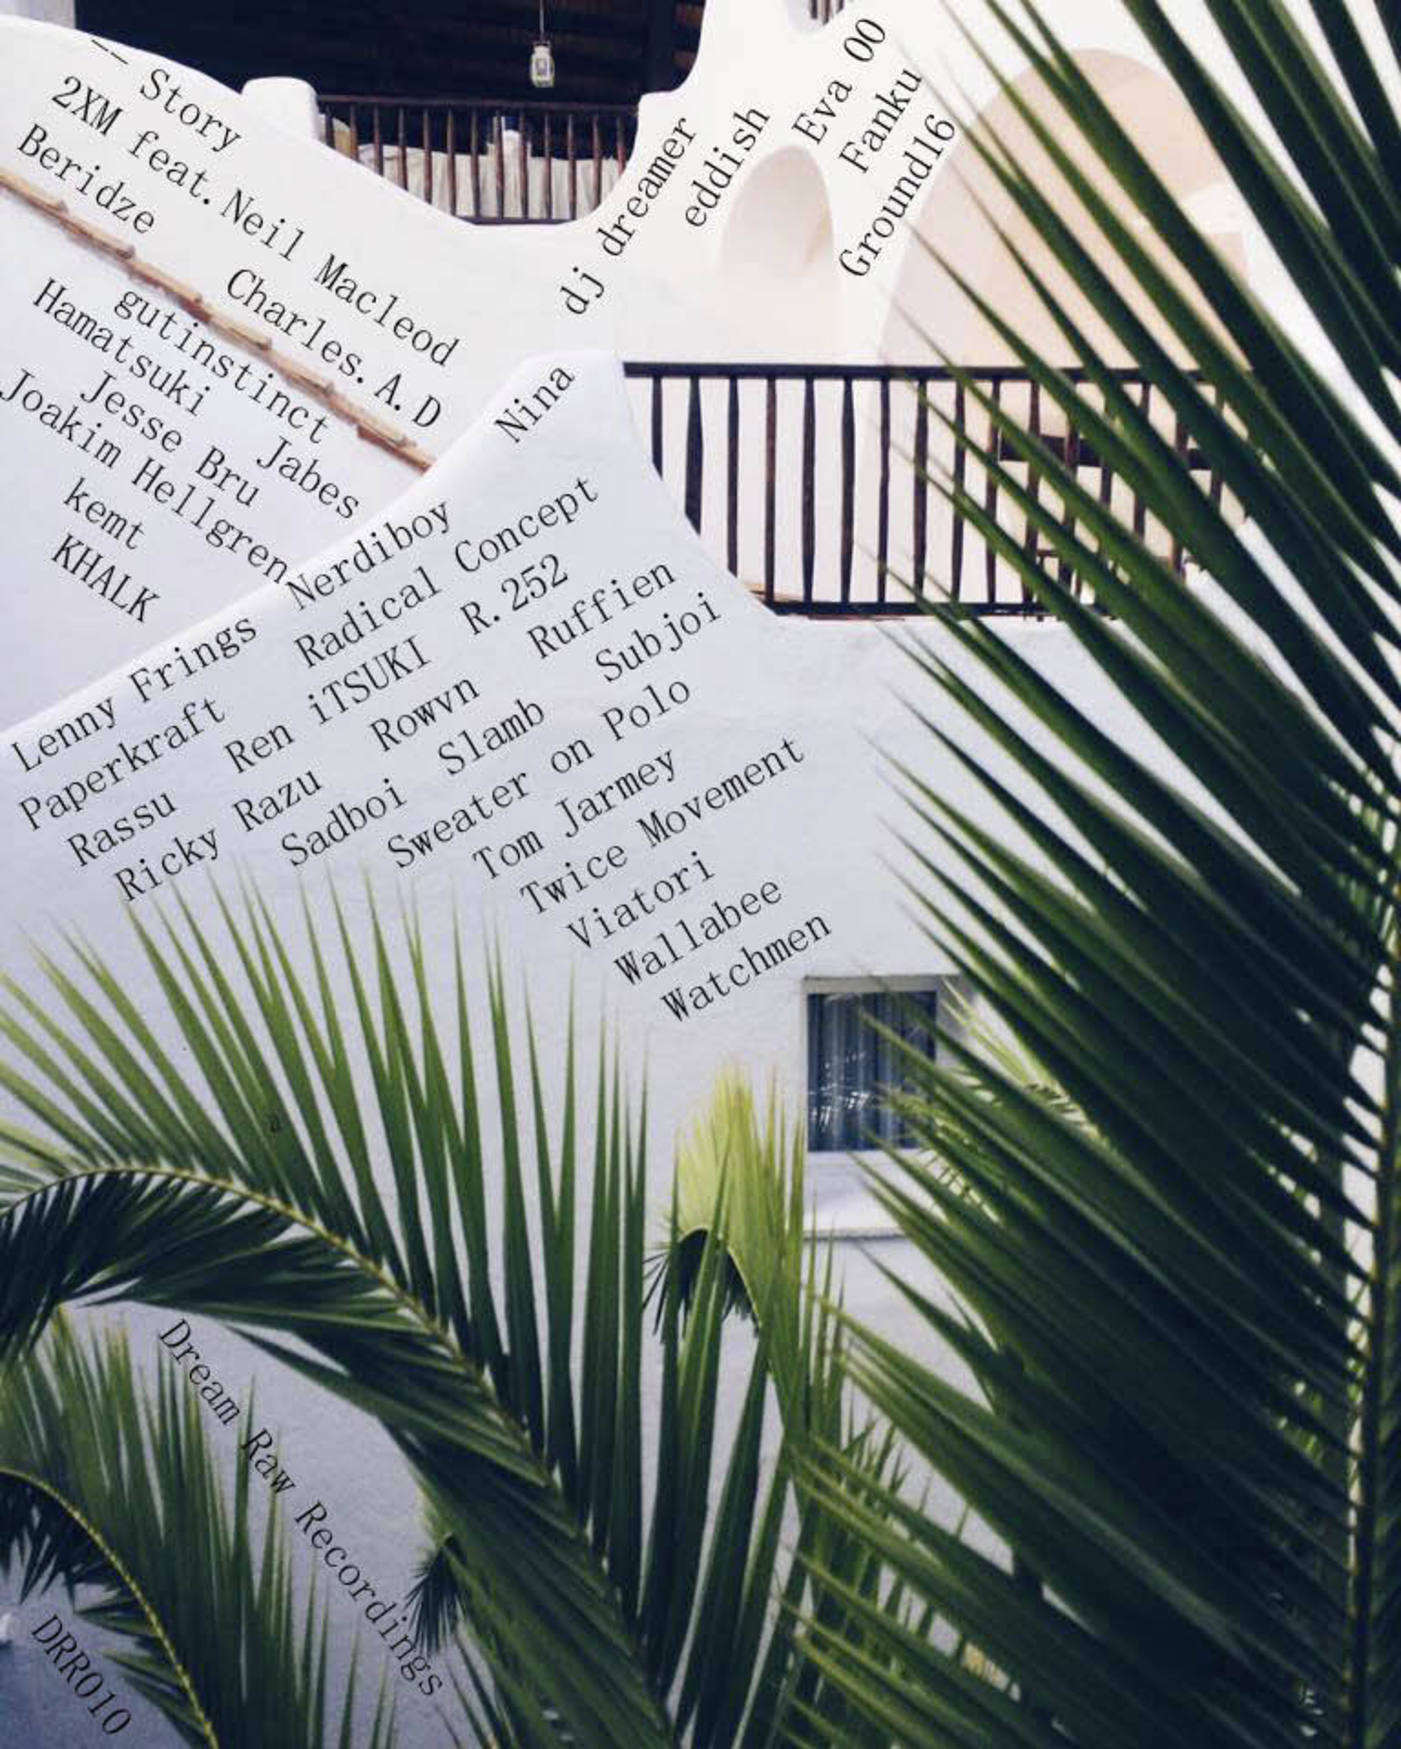 -- Story
2XM feat.Neil Macleod
Beridze
Charles.A.D
dj dreamer
eddish
Eva 00
Fanku
Ground16
gutinstinct
Hamatsuki
Jabes
Jesse Bru
Joakim Hellgren
kemt
KHALK
Lenny Frings
Nerdiboy
Nina
Paperkraft
Radical Concept
Rassu
Ren iTSUKI
R.252
Ricky Razu
Rowvn
Ruffien
Sadboi
Slamb
Subjoi
Sweater on Polo
Tom Jarmey
Twice Movement
Viatori
Wallabee
Watchmen
Dream Raw Recordings
DRR010